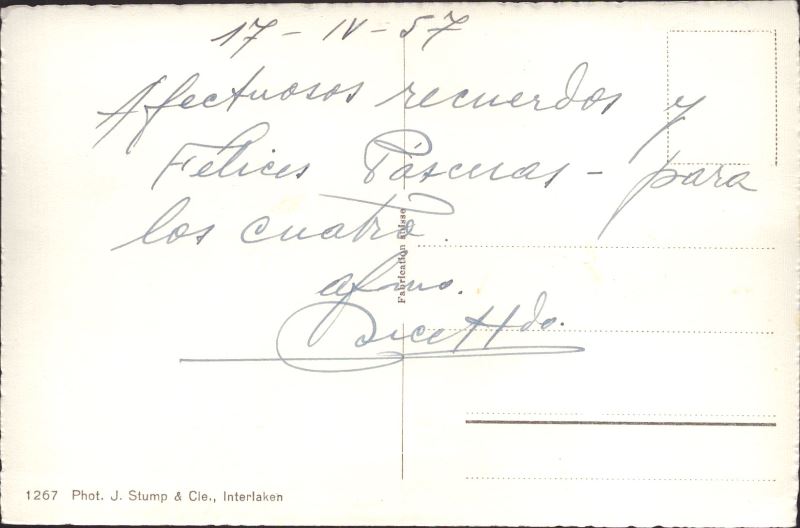 17-IV-57
Afectuosos recuerdos y
Felices Páscuas - para
los cuatro.
afmo.
Fabrication suisse
1267 Phot. J. Stump & Cie., Interlaken